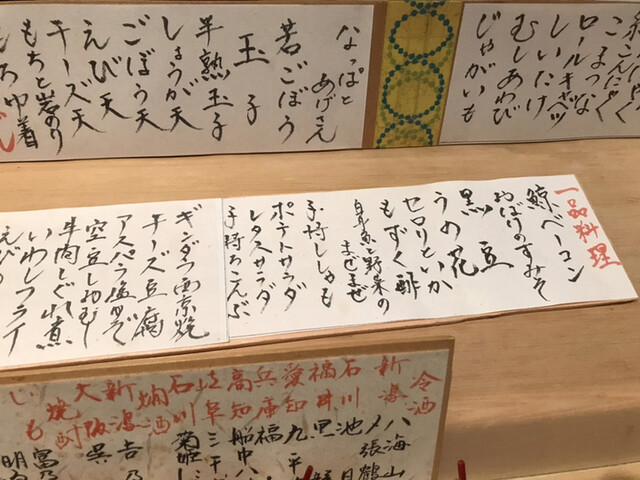 こんにゃく
こまつな
ロールキャベツ
しいたけ
むしあわび
じゃがいも
なっぱと
あげさん
若ごぼう
玉子
半熟玉子
しょうが天
ごぼう天
えび天
チーズ天
もちと岩のり
巾着
一品料理
鯨ベーコン
おばけのすみそ
黒豆
うめ花
セロリといか
もずく酢
白身魚と野菜の
まぜまぜ
子持ししゃも
ポテトサラダ
レタスサラダ
子持ちこんぶ
ギンダラ西京焼
チーズ豆腐
アスパラ塩ゆで
空豆しおむし
牛肉しぐれ煮
いわしフライ
冷酒
新潟 八海山
〆張鶴
石川
福井 黒
愛知 九平
兵庫 福
高知 船中八
岐阜 三千
石川 菊姫
燗酒
新潟 吉乃
大阪 呉
焼酎
富乃
いも